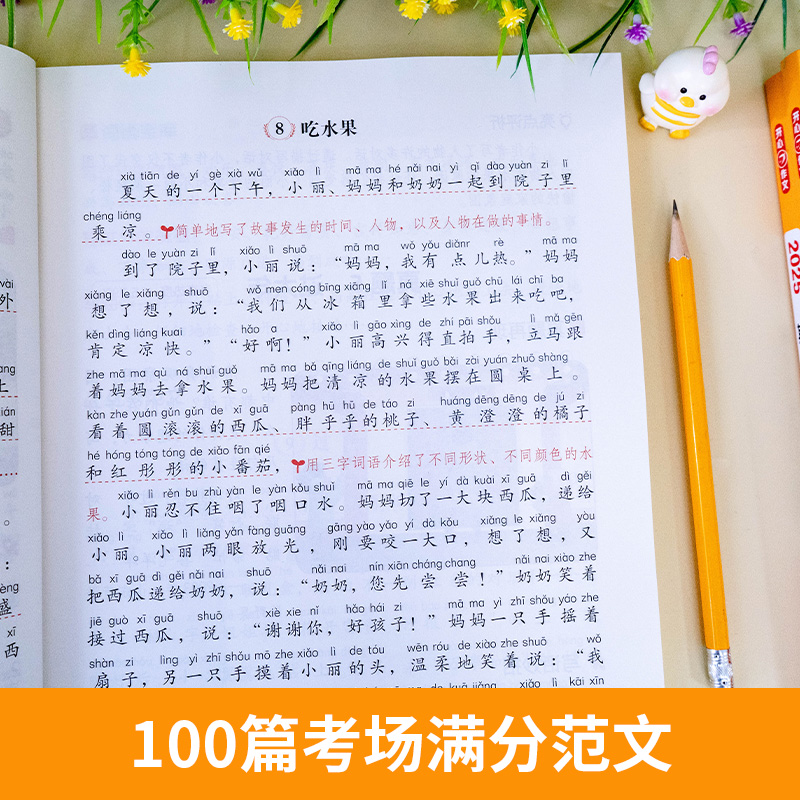 8 吃水果
xià tiān de yí gè xià wǔ xiǎo lì mā ma hé nǎi nai yì qǐ dào yuàn zi lǐ
夏天的一个下午，小丽、妈妈和奶奶一起到院子里
chéng liáng
乘凉。简单地写了故事发生的时间、人物，以及人物在做的事情。
dào le yuàn zi lǐ xiǎo lì shuō mā ma wǒ yǒu diǎnr rè mā ma
到了院子里，小丽说：“妈妈，我有点儿热。”妈妈
xiǎng le xiǎng shuō wǒ men cóng bīng xiāng lǐ ná xiē shuǐ guǒ chū lái chī ba
想了想，说：“我们从冰箱里拿些水果出来吃吧，
kěn dìng liáng kuai hǎo a xiǎo lì gāo xìng de zhí pāi shǒu lì mǎ gēn
肯定凉快。”“好啊！”小丽高兴得直拍手，立马跟
zhe mā ma qù ná shuǐ guǒ mā ma bǎ qīng liáng de shuǐ guǒ bǎi zài yuán zhuō shàng
着妈妈去拿水果。妈妈把清凉的水果摆在圆桌上。
kàn zhe yuán gǔn gǔn de xī guā pàng hū hū de táo zi huáng dēng dēng de jú zi
看着圆滚滚的西瓜、胖乎乎的桃子、黄澄澄的橘子
hé hóng tóng tóng de xiǎo fān qié
和红彤彤的小番茄，用三字词语介绍了不同形状、不同颜色的水
xiǎo lì rěn bu zhù yàn le yàn kǒu shuǐ mā ma qiē le yí dà kuài xī guā dì gěi
果。小丽忍不住咽了咽口水。妈妈切了一大块西瓜，递给
xiǎo lì xiǎo lì liǎng yǎn fàng guāng gāng yào yǎo yí dà kǒu xiǎng le xiǎng yòu
小丽。小丽两眼放光，刚要咬一大口，想了想，又
bǎ xī guā dì gěi nǎi nai shuō nǎi nai nín xiān cháng chang nǎi nai xiào zhe
把西瓜递给奶奶，说：“奶奶，您先尝尝！”奶奶笑着
jiē guò xī guā shuō xiè xie nǐ hǎo hái zi mā ma yì zhī shǒu yáo zhe
接过西瓜，说：“谢谢你，好孩子！”妈妈一只手摇着
shàn zi lìng yì zhī shǒu mō zhe xiǎo lì de tóu wēn róu de xiào zhe shuō wǒ
扇子，另一只手摸着小丽的头，温柔地笑着说：“我
开心作文
2025
100篇考场满分范文